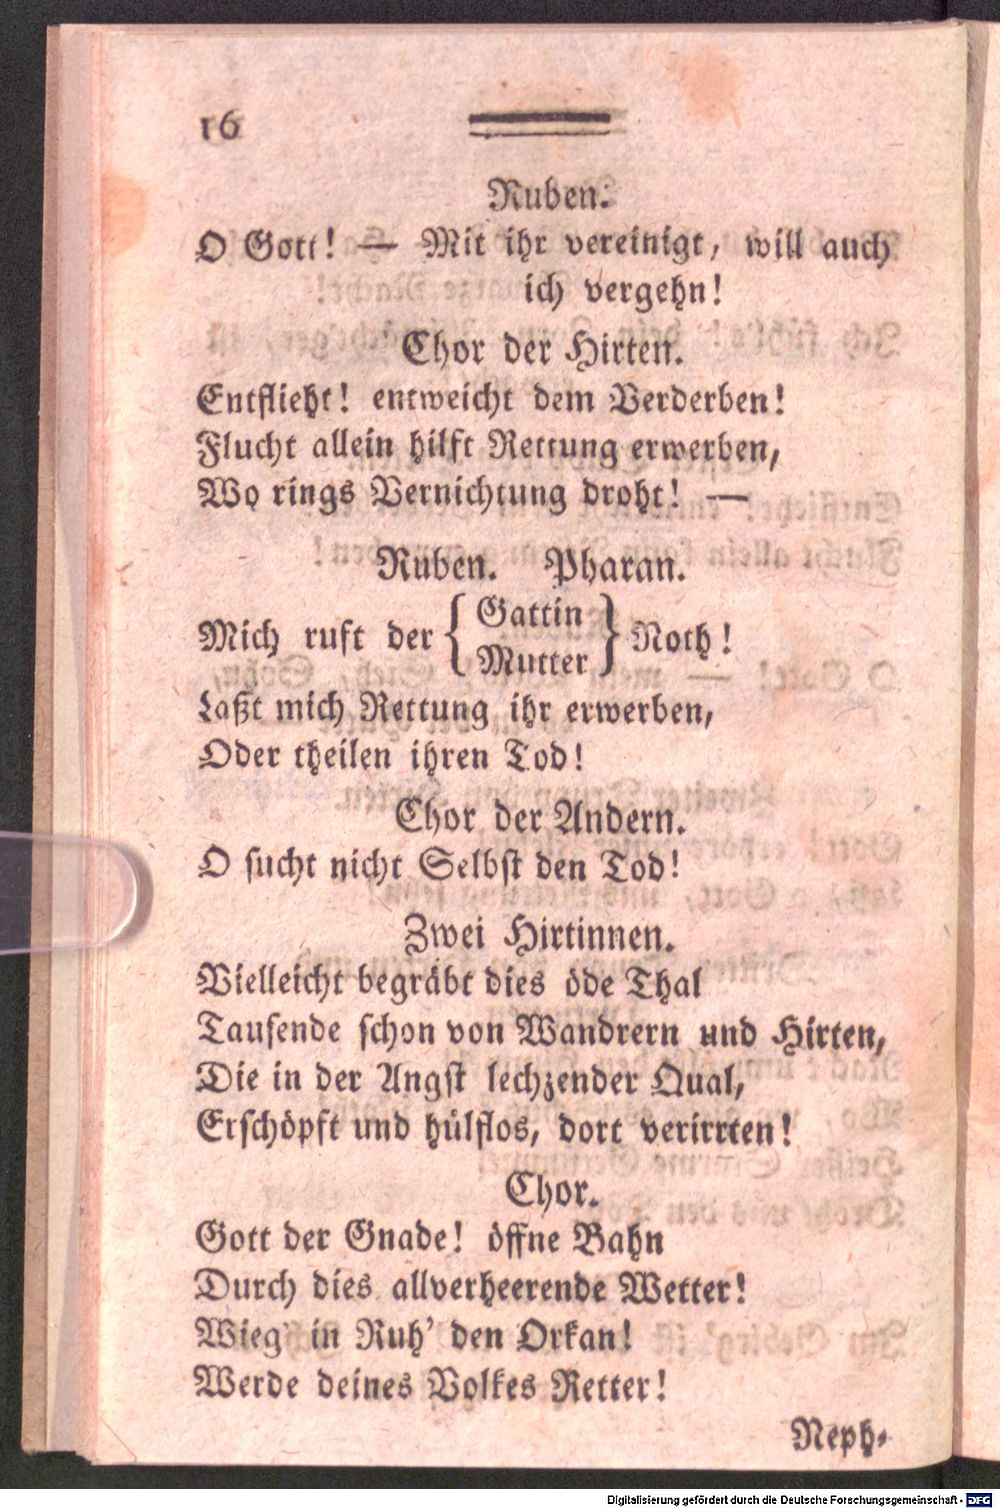 16
Ruben.
O Gott! — Mit ihr vereinigt, will auch
ich vergehn!
Chor der Hirten.
Entflieht! entweicht dem Verderben!
Flucht allein hilft Rettung erwerben,
Wo rings Vernichtung droht! —
Ruben. Pharan.
Mich ruft der { Gattin
Mutter } Noth!
Laßt mich Rettung ihr erwerben,
Oder theilen ihren Tod!
Chor der Andern.
O sucht nicht Selbst den Tod!
Zwei Hirtinnen.
Vielleicht begräbt dies öde Thal
Tausende schon von Wandrern und Hirten,
Die in der Angst lechzender Qual,
Erschöpft und hülflos, dort verirrten!
Chor.
Gott der Gnade! öffne Bahn
Durch dies allverheerende Wetter!
Wieg' in Ruh' den Orkan!
Werde deines Volkes Retter!
Neph-
Digitalisierung gefördert durch die Deutsche Forschungsgemeinschaft - DFG